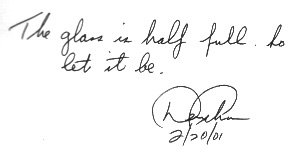 The glass is half full. So
let it be.
2/20/01